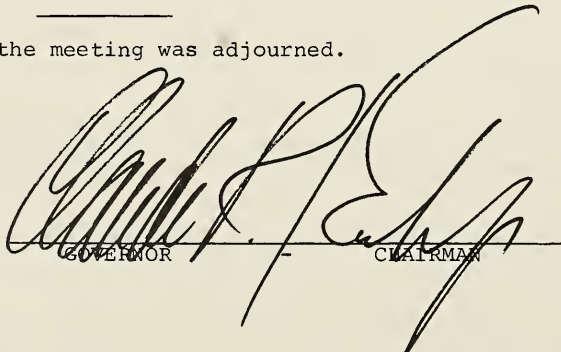 the meeting was adjourned.
GOVERNOR - CHAIRMAN